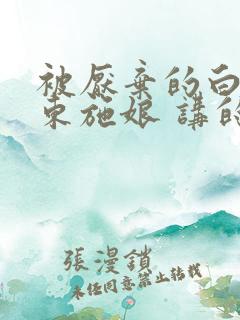 被厭棄的白
東施娘 講的
張漫鎖
未經同意禁止轉載